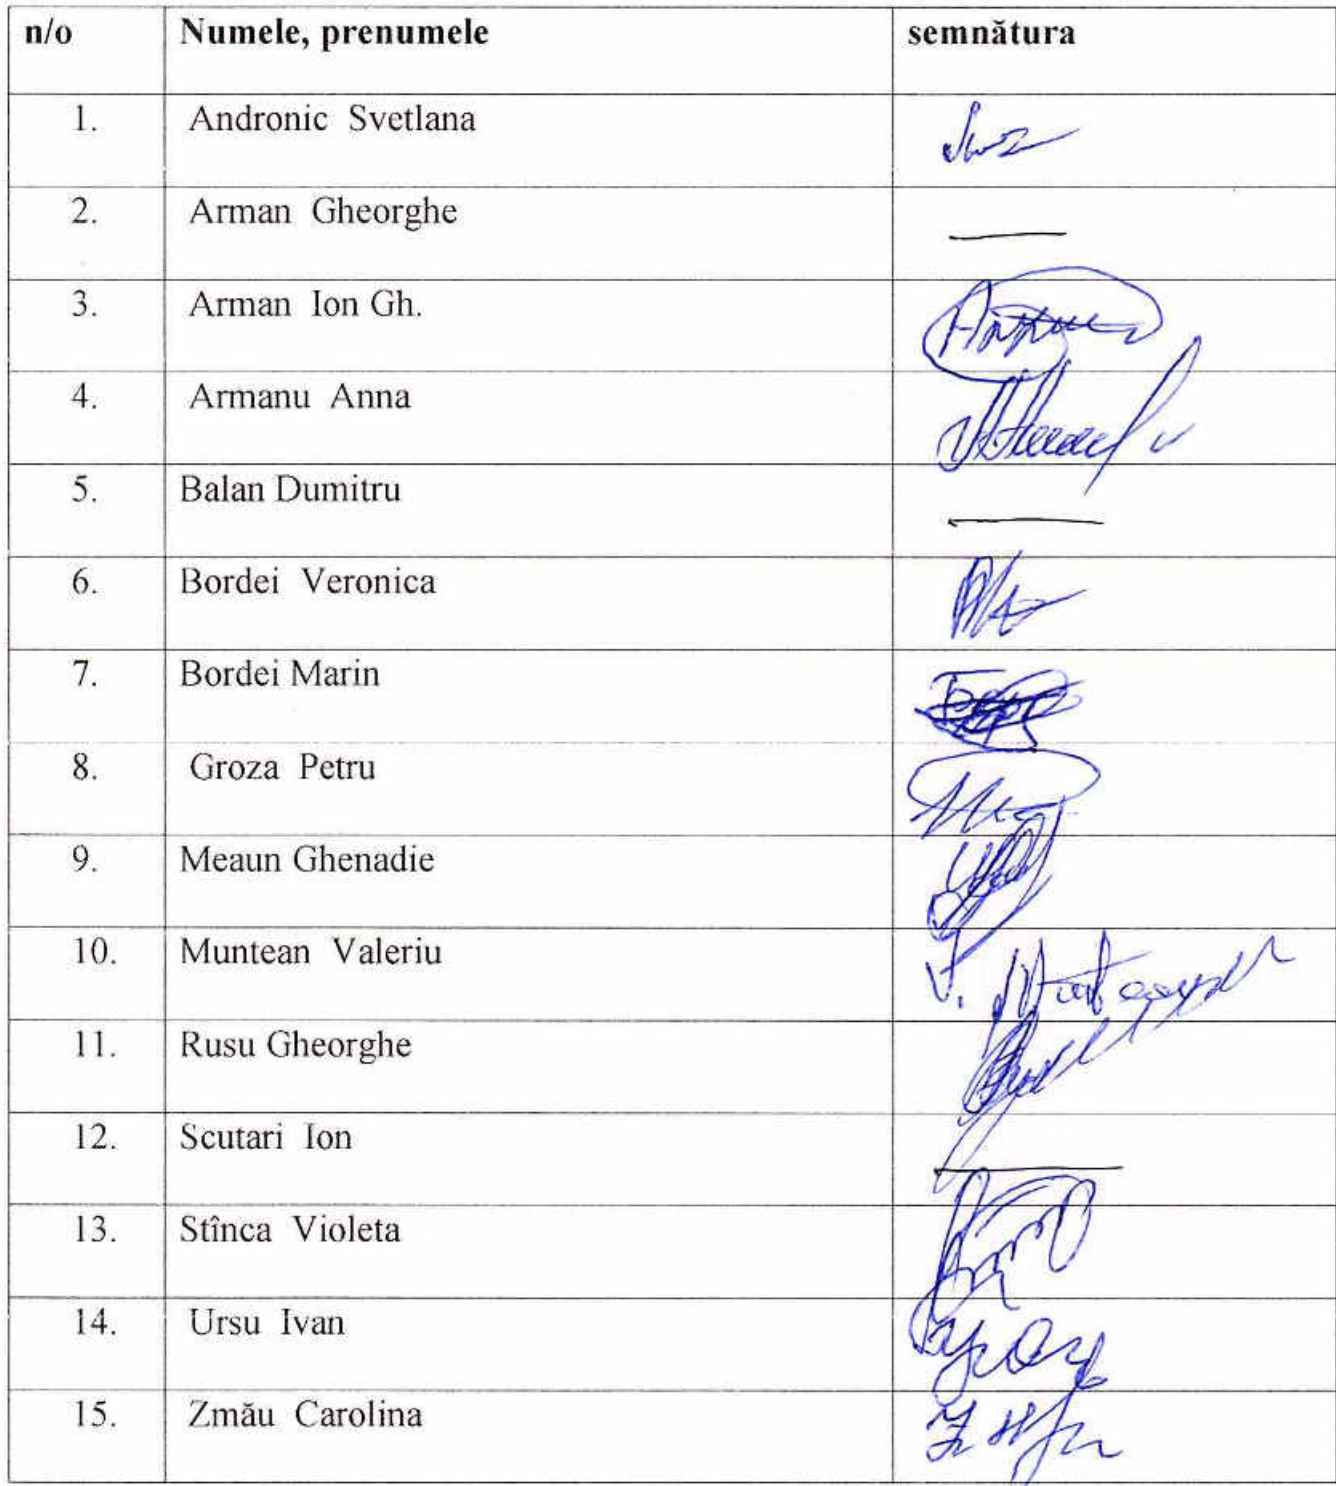 n/o Numele, prenumele semnătura
1. Andronic Svetlana
2. Arman Gheorghe
3. Arman Ion Gh.
4. Armanu Anna
5. Balan Dumitru
6. Bordei Veronica
7. Bordei Marin
8. Groza Petru
9. Meaun Ghenadie
10. Muntean Valeriu
11. Rusu Gheorghe
12. Scutari Ion
13. Stînca Violeta
14. Ursu Ivan
15. Zmău Carolina